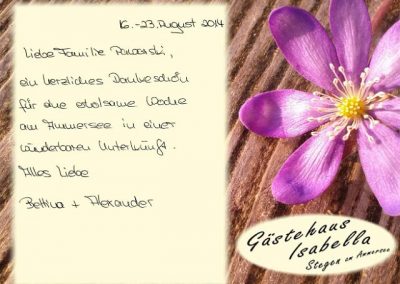 16.-23. August 2014
Liebe Familie
ein herzliches Dankeschön
für eine erholsame Woche
am Ammersee in einer
wunderbaren Unterkunft.
Alles Liebe
Bettina + Alexander
Gästehaus
Isabella
Stegen am Ammersee